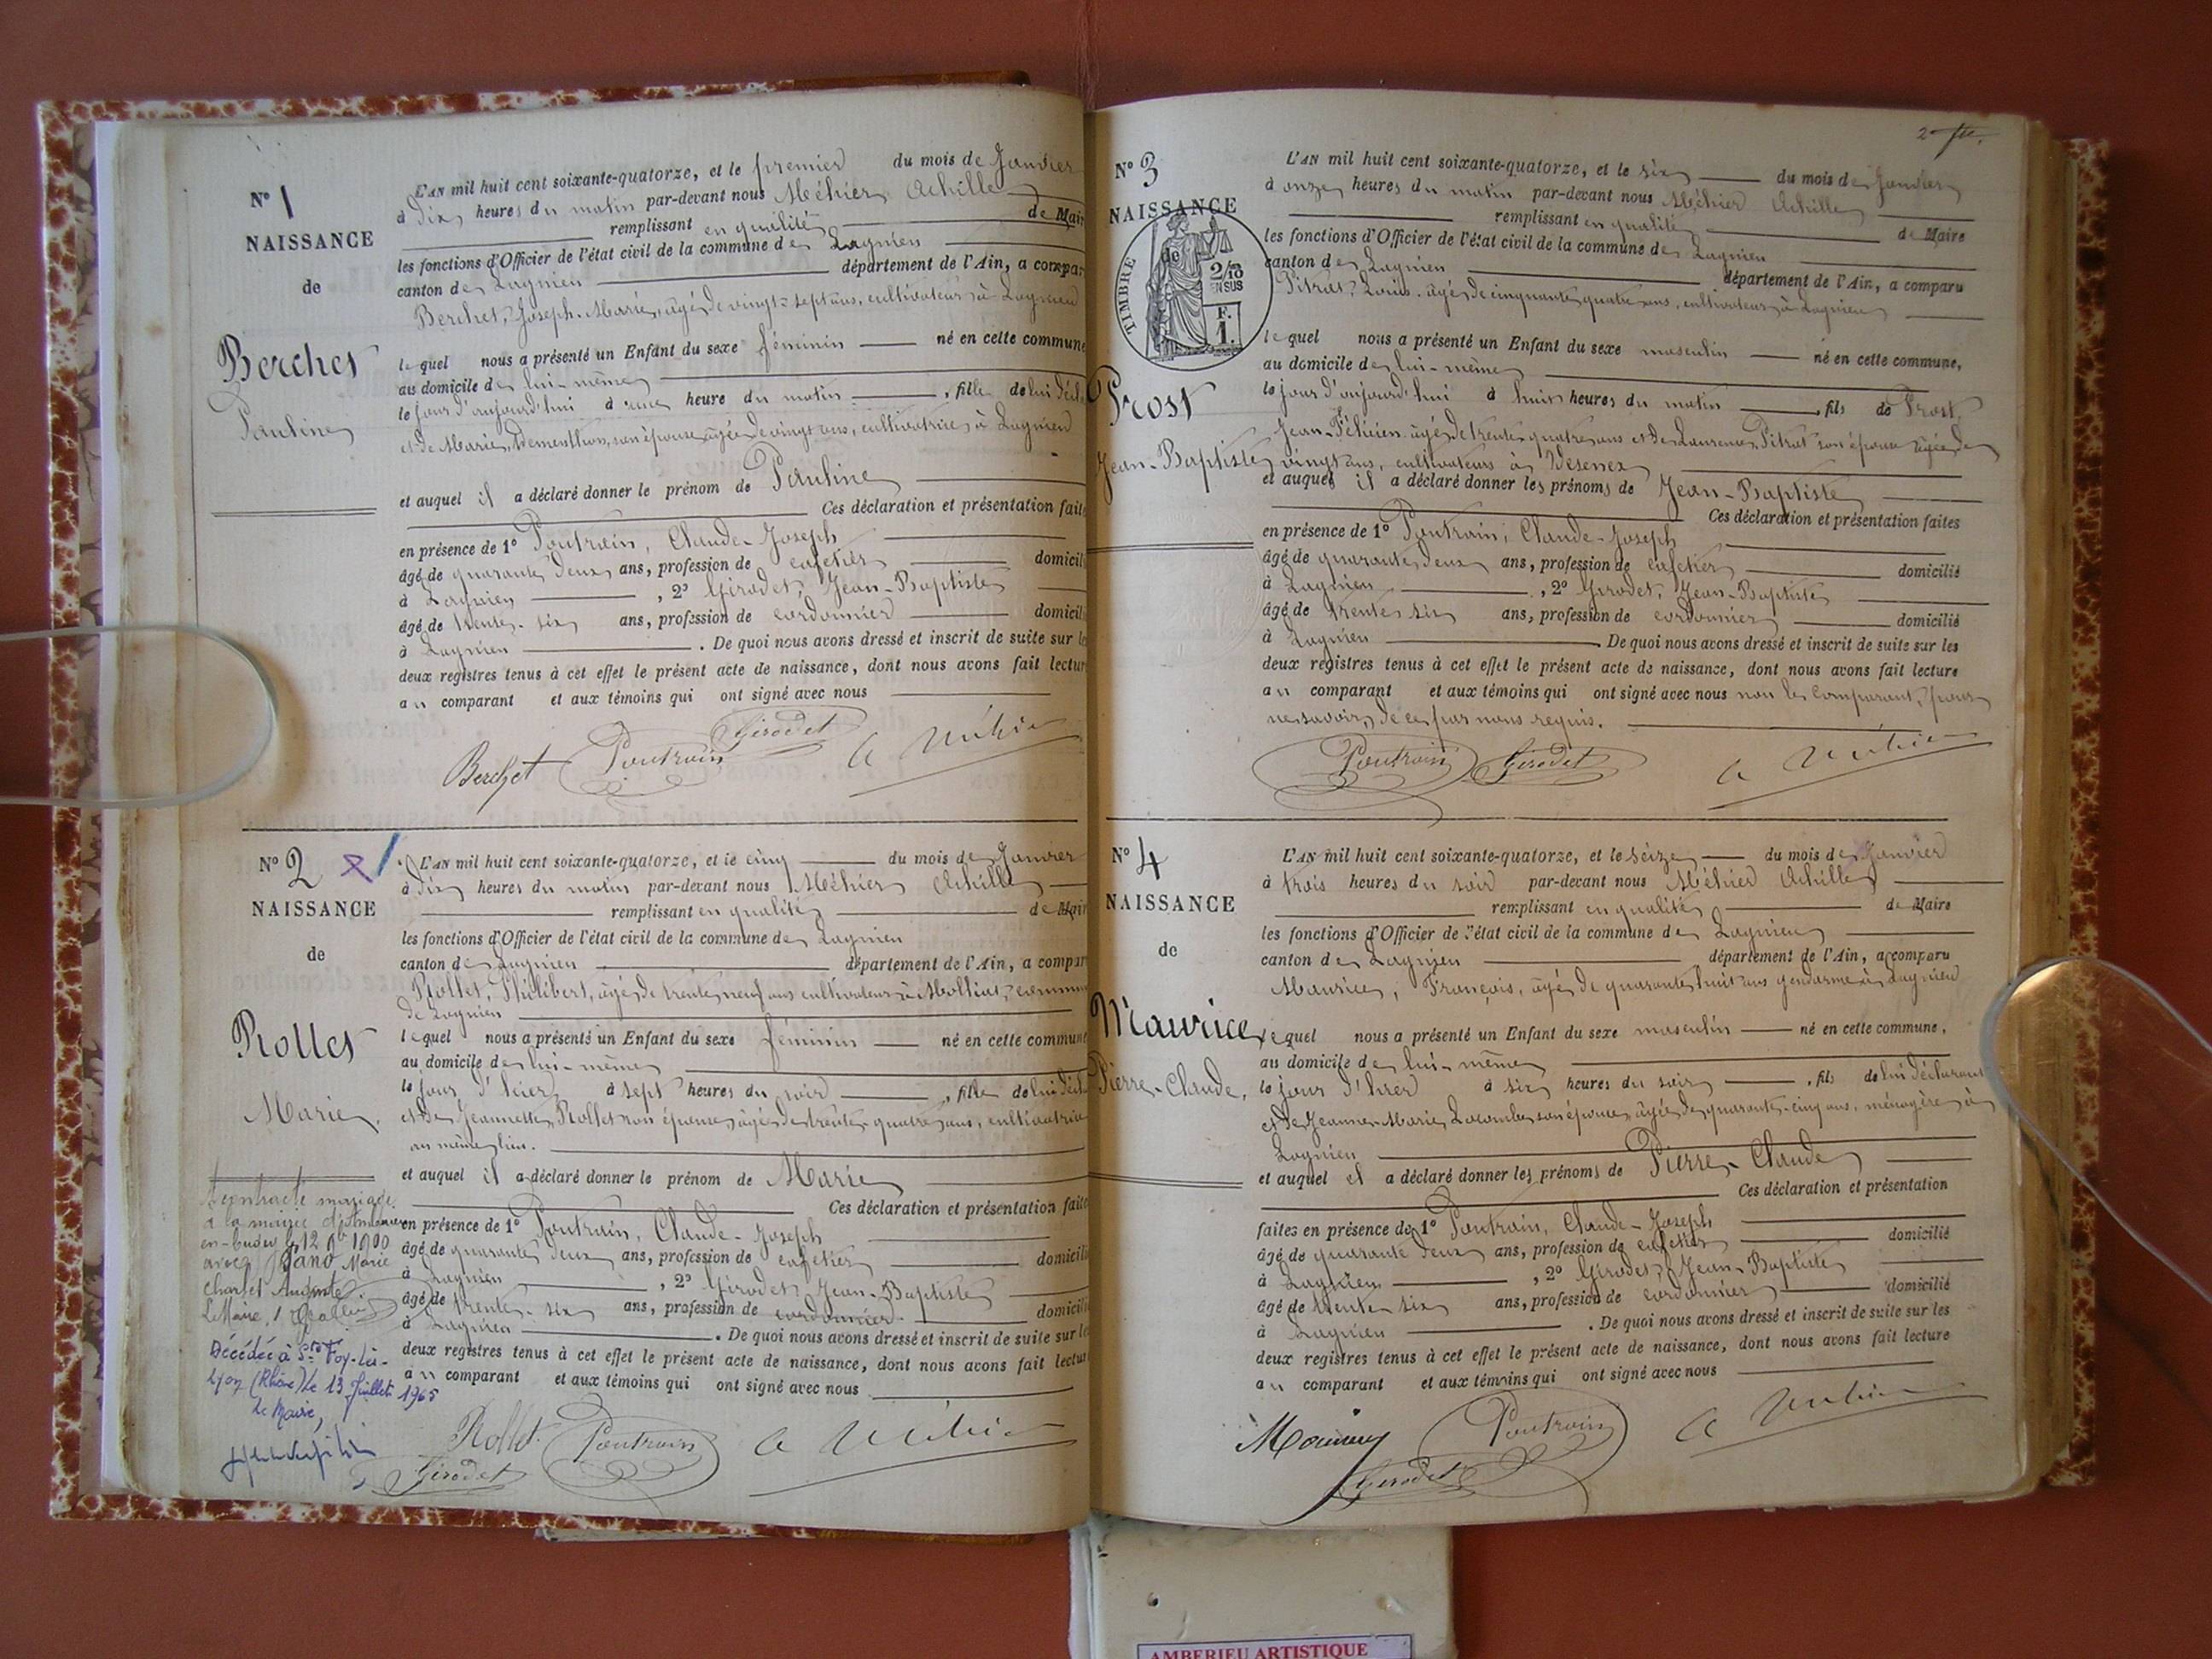 N° 1
NAISSANCE
de
Berchet
Pauline
L'AN mil huit cent soixante-quatorze, et le premier du mois de Janvier
à dix heures du matin par-devant nous Méhier Achille
remplissant en qualité de Mair
les fonctions d'Officier de l'état civil de la commune de Lagnieu
canton de Lagnieu département de l'Ain, a compar
Berchet, Joseph-Marie, âgé de vingt-sept ans, cultivateur à Lagnieu
lequel nous a présenté un Enfant du sexe féminin né en cette commune
au domicile de lui-même
le jour d'aujourd'hui à une heure du matin , fille de lui décl
et de Marie son épouse âgée de vingt ans, cultivatrice à Lagnieu
et auquel il a déclaré donner le prénom de Pauline
Ces déclaration et présentation faite
en présence de 1° Poutrain, Claude-Joseph
âgé de quarante deux ans, profession de cafetier domicili
à Lagnieu , 2° Girodet, Jean-Baptiste
âgé de trente-six ans, profession de cordonnier domicili
à Lagnieu . De quoi nous avons dressé et inscrit de suite sur le
deux registres tenus à cet effet le présent acte de naissance, dont nous avons fait lectur
au comparant et aux témoins qui ont signé avec nous
Berchet Poutrain Girodet A Méhier
N° 2
NAISSANCE
de
Rollet
Marie.
L'AN mil huit cent soixante-quatorze, et le cinq du mois de Janvier
à dix heures du matin par-devant nous Méhier Achille
remplissant en qualité de Mair
les fonctions d'Officier de l'état civil de la commune de Lagnieu
canton de Lagnieu département de l'Ain, a compar
Rollet, Philibert, âgé de trente neuf ans cultivateur à commune
de Lagnieu
lequel nous a présenté un Enfant du sexe féminin né en cette commune
au domicile de lui-même
le jour d'hier à sept heures du soir , fille de lui décl
et de Jeannette Rollet son épouse âgée de trente-quatre ans, cultivatrice
au même lieu.
et auquel il a déclaré donner le prénom de Marie
Ces déclaration et présentation faite
en présence de 1° Poutrain, Claude-Joseph
âgé de quarante deux ans, profession de cafetier domicili
à Lagnieu , 2° Girodet Jean-Baptiste
âgé de trente-six ans, profession de cordonnier domicili
à Lagnieu . De quoi nous avons dressé et inscrit de suite sur le
deux registres tenus à cet effet le présent acte de naissance, dont nous avons fait lectur
au comparant et aux témoins qui ont signé avec nous
A contracté mariage
à la mairie d'Ambérieu
en-Bugey le 12 1900
avec Marie
Charles Auguste
Le Maire,
Décédée à Ste Foy-lès-
Lyon (Rhône) le 13 Juillet 1965
Le Maire,
Rollet Poutrain A Méhier
Girodet
2
N° 3
NAISSANCE
de
TIMBRE
2/10
EN SUS
F.
1.
Prost
Jean-Baptiste
L'AN mil huit cent soixante-quatorze, et le six du mois de Janvier
à onze heures du matin par-devant nous Méhier Achille
remplissant en qualité de Maire
les fonctions d'Officier de l'état civil de la commune de Lagnieu
canton de Lagnieu département de l'Ain, a comparu
Pitrat, Louis, âgé de cinquante quatre ans, cultivateur à Lagnieu
lequel nous a présenté un Enfant du sexe masculin né en cette commune,
au domicile de lui-même
le jour d'aujourd'hui à huit heures du matin , fils de Prost,
Jean-Félicien âgé de trente quatre ans et de Laurence Pitrat son épouse âgée de
vingt ans, cultivateurs à
et auquel il a déclaré donner les prénoms de Jean-Baptiste
Ces déclaration et présentation faites
en présence de 1° Poutrain, Claude-Joseph
âgé de quarante deux ans, profession de cafetier domicilié
à Lagnieu , 2° Girodet, Jean-Baptiste
âgé de trente six ans, profession de cordonnier domicilié
à Lagnieu De quoi nous avons dressé et inscrit de suite sur les
deux registres tenus à cet effet le présent acte de naissance, dont nous avons fait lecture
au comparant et aux témoins qui ont signé avec nous non le comparant, pour
ne savoir, de ce par nous requis.
Poutrain Girodet A Méhier
N° 4
NAISSANCE
de
Maurice
Pierre-Claude.
L'AN mil huit cent soixante-quatorze, et le seize du mois de Janvier
à trois heures du soir par-devant nous Méhier Achille
remplissant en qualité de Maire
les fonctions d'Officier de l'état civil de la commune de Lagnieu
canton de Lagnieu département de l'Ain, a comparu
Maurice, François, âgé de quarante huit ans gendarme à Lagnieu
lequel nous a présenté un Enfant du sexe masculin né en cette commune,
au domicile de lui-même
le jour d'hier à six heures du soir , fils de lui déclarant
et de Jeanne-Marie Lacombe son épouse, âgée de quarante-cinq ans, ménagère à
Lagnieu
et auquel il a déclaré donner les prénoms de Pierre-Claude
Ces déclaration et présentation
faites en présence de 1° Poutrain, Claude-Joseph
âgé de quarante deux ans, profession de cafetier domicilié
à Lagnieu , 2° Girodet, Jean-Baptiste
âgé de trente six ans, profession de cordonnier domicilié
à Lagnieu . De quoi nous avons dressé et inscrit de suite sur les
deux registres tenus à cet effet le présent acte de naissance, dont nous avons fait lecture
au comparant et aux témoins qui ont signé avec nous
Maurice Poutrain A Méhier
Girodet
AMBERIEU ARTISTIQUE